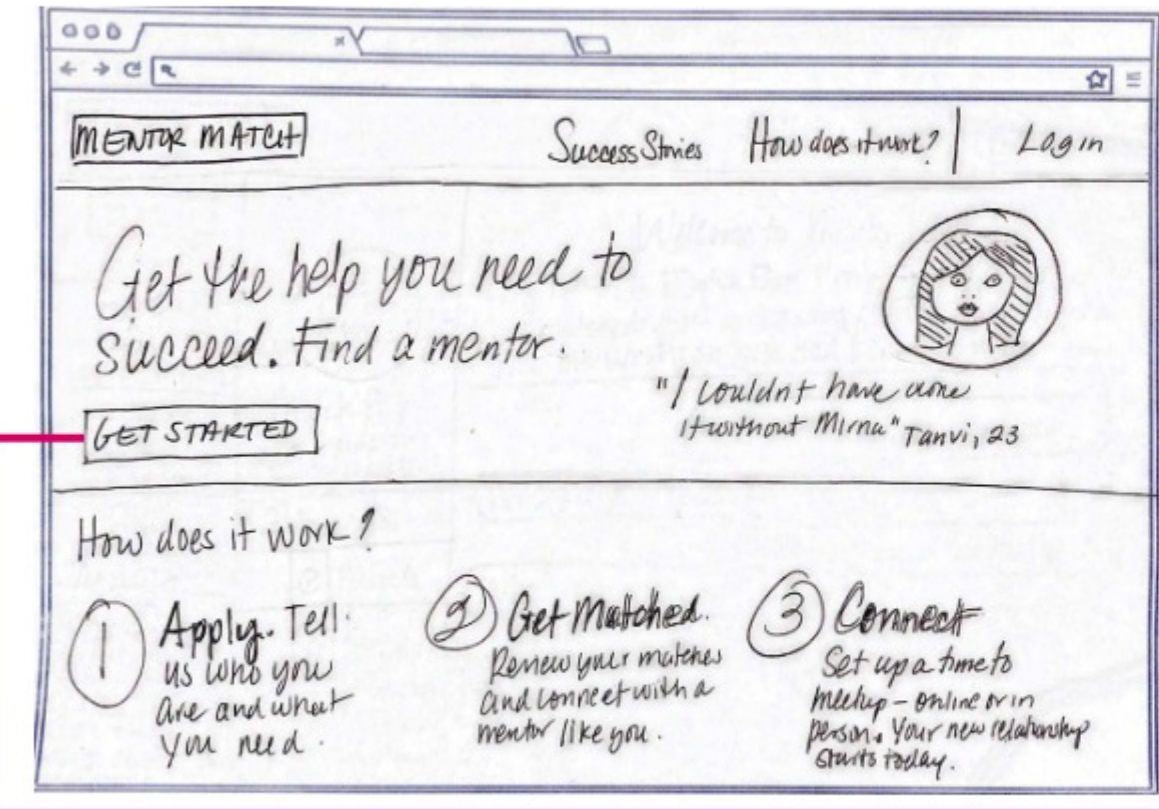 MENTOR MATCH
Success Stories How does it work? Login
Get the help you need to
succeed. Find a mentor.
"I couldnt have done
it without Mirna" Tanvi, 23
GET STARTED
How does it work?
1 Apply. Tell
us who you
are and what
you need.
2 Get Matched.
Review your matches
and connect with a
mentor like you.
3 Connect
Set up a time to
meetup - online or in
person. Your new relationship
starts today.